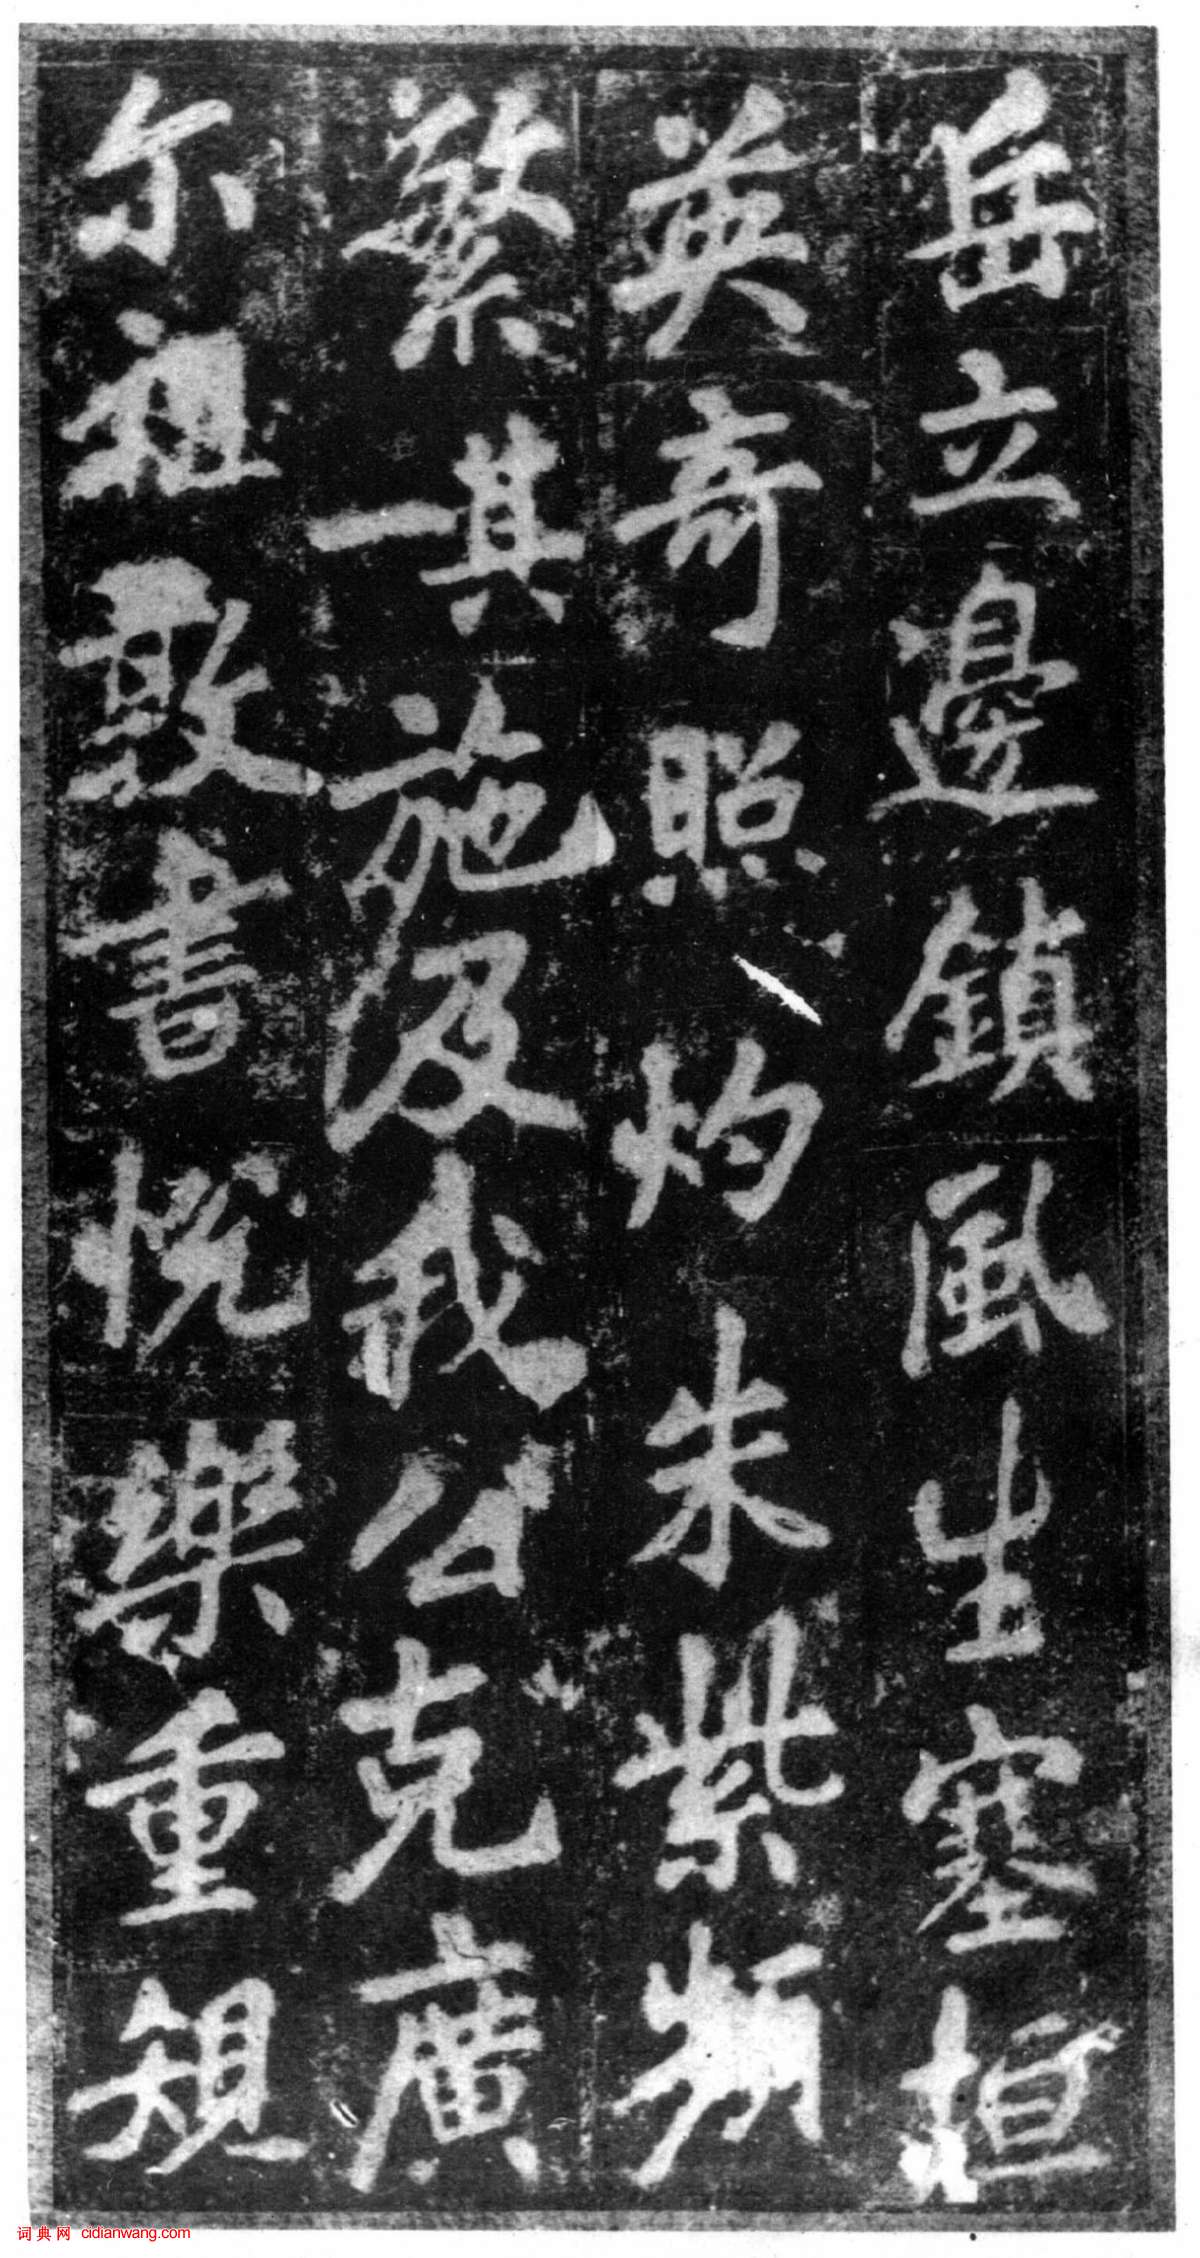 岳立邊鎮風生塞垣
英奇照灼朱紫頻
繁其一施及我公克廣
尔祖敦書悦樂重規
词典网 cidianwang.com